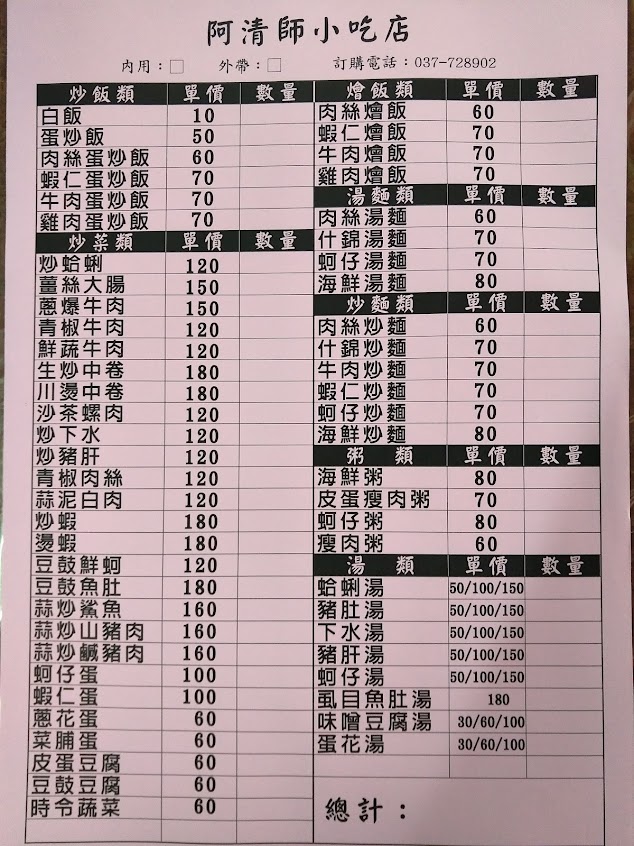 阿清師小吃店
內用：□ 外帶：□ 訂購電話：037-728902
炒飯類 單價 數量
白飯 10
蛋炒飯 50
肉絲蛋炒飯 60
蝦仁蛋炒飯 70
牛肉蛋炒飯 70
雞肉蛋炒飯 70
炒菜類 單價 數量
炒蛤蜊 120
薑絲大腸 150
蔥爆牛肉 150
青椒牛肉 120
鮮蔬牛肉 120
生炒中卷 180
川燙中卷 180
沙茶螺肉 120
炒下水 120
炒豬肝 120
青椒肉絲 120
蒜泥白肉 120
炒蝦 180
燙蝦 180
豆鼓鮮蚵 120
豆鼓魚肚 180
蒜炒鯊魚 160
蒜炒山豬肉 160
蒜炒鹹豬肉 160
蚵仔蛋 100
蝦仁蛋 100
蔥花蛋 60
菜脯蛋 60
皮蛋豆腐 60
豆鼓豆腐 60
時令蔬菜 60
燴飯類 單價 數量
肉絲燴飯 60
蝦仁燴飯 70
牛肉燴飯 70
雞肉燴飯 70
湯麵類 單價 數量
肉絲湯麵 60
什錦湯麵 70
蚵仔湯麵 70
海鮮湯麵 80
炒麵類 單價 數量
肉絲炒麵 60
什錦炒麵 70
牛肉炒麵 70
蝦仁炒麵 70
蚵仔炒麵 70
海鮮炒麵 80
粥類 單價 數量
海鮮粥 80
皮蛋瘦肉粥 70
蚵仔粥 80
瘦肉粥 60
湯類 單價 數量
蛤蜊湯 50/100/150
豬肚湯 50/100/150
下水湯 50/100/150
豬肝湯 50/100/150
蚵仔湯 50/100/150
虱目魚肚湯 180
味噌豆腐湯 30/60/100
蛋花湯 30/60/100
總計：